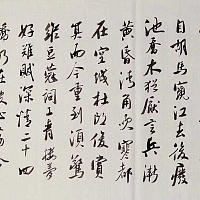 自胡馬窺江去後廢
池喬木猶厭言兵漸
黃昏清角吹寒都
在空城杜郎俊賞
算而今重到須驚
縱豆蔻詞工青樓夢
好難賦深情二十四
橋仍在波心蕩